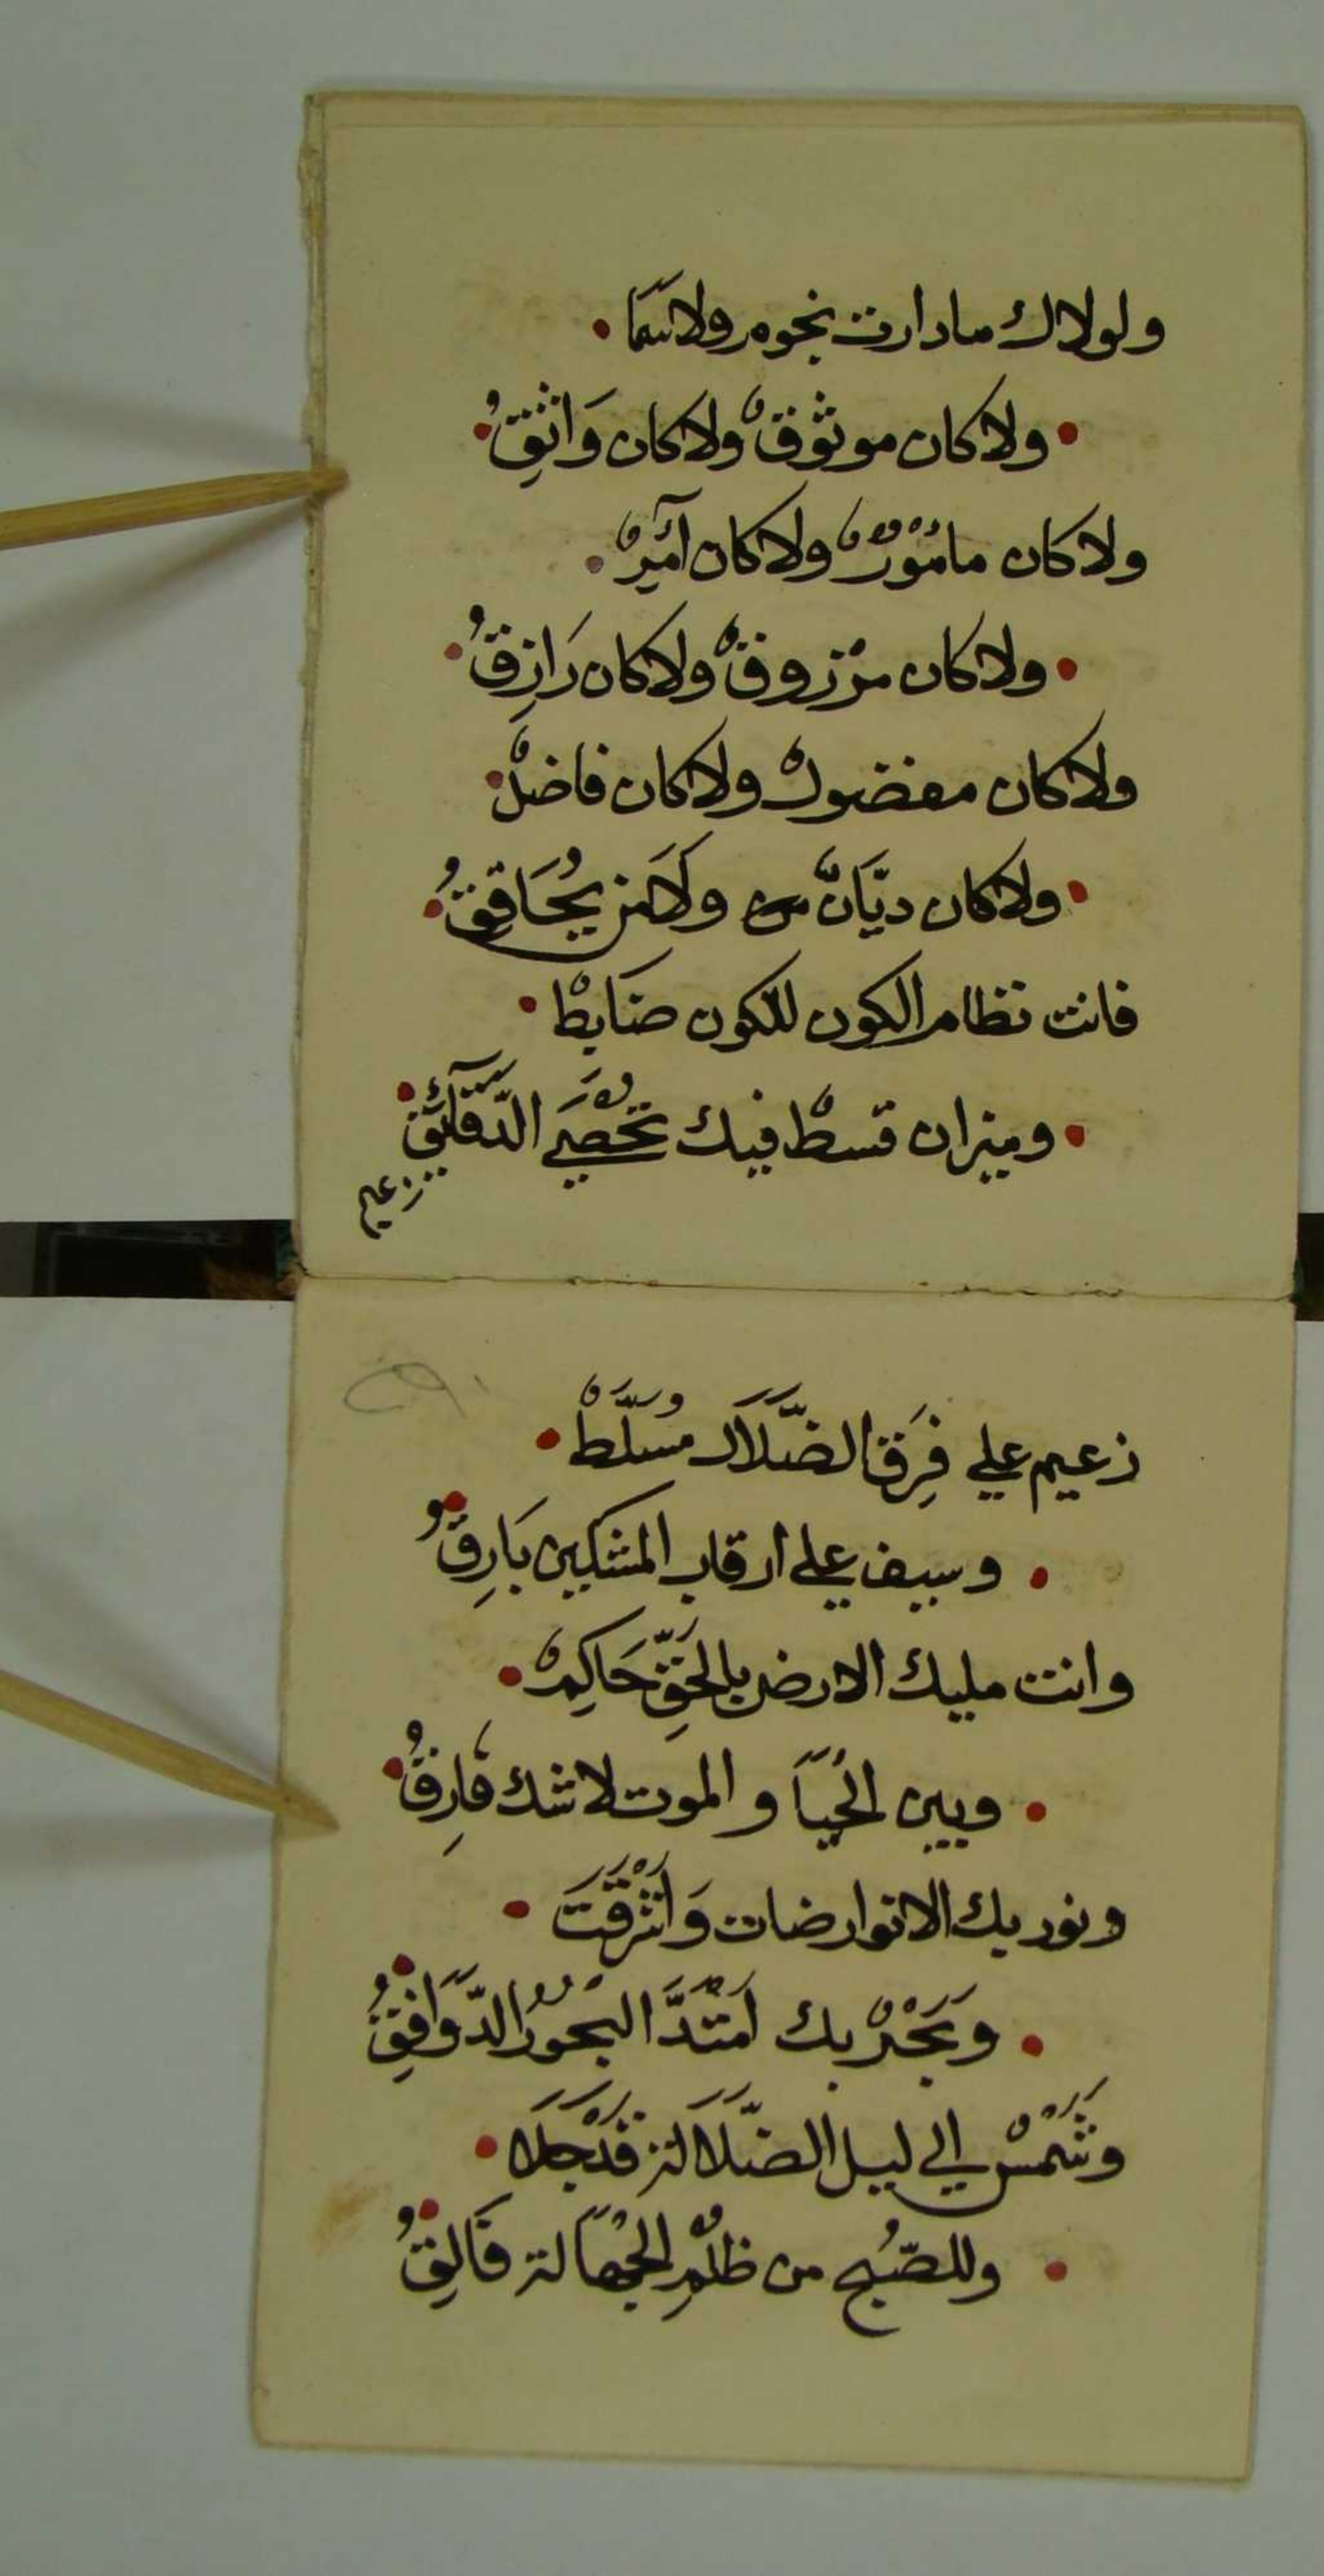 ولولاك مادارت نجوم ولا سَمَا
ولا كان موثوقٌ ولا كان وَاثِقُ
ولا كان مامُورٌ ولا كان آمِرٌ
ولا كان مرْزوقٌ ولا كان رَازِقُ
ولا كان مفضولٌ ولا كان فاضلٌ
ولا كان ديَّانٌ ولَا مَن يُحَاقِقُ
فانت نظام الكون للكون ضَابِطٌ
وميزان قسطٌ فيك تُحْصَي الدَّقَآئِقُ
زعيم
زعيم علي فِرَق الضَّلَال مُسَلَّطٌ
وسيف علي ارقاب المشكين بَارِقُ
وانت مليك الارض بالحَقِّ حَاكِمٌ
وبين الحُيَا والموت لاشك فَارِقُ
ونور بك الانوار ضات وَاَشْرَقَتَ
وَبَحْرٌ بك اَمْتَدَّ البُحُورُ الدَّوَافِقُ
وشَمْسٌ الي ليل الضَّلَالَة قَدْجَلَا
وللصُّبح من ظُلْمِ الجَهَالة فَالِقُ